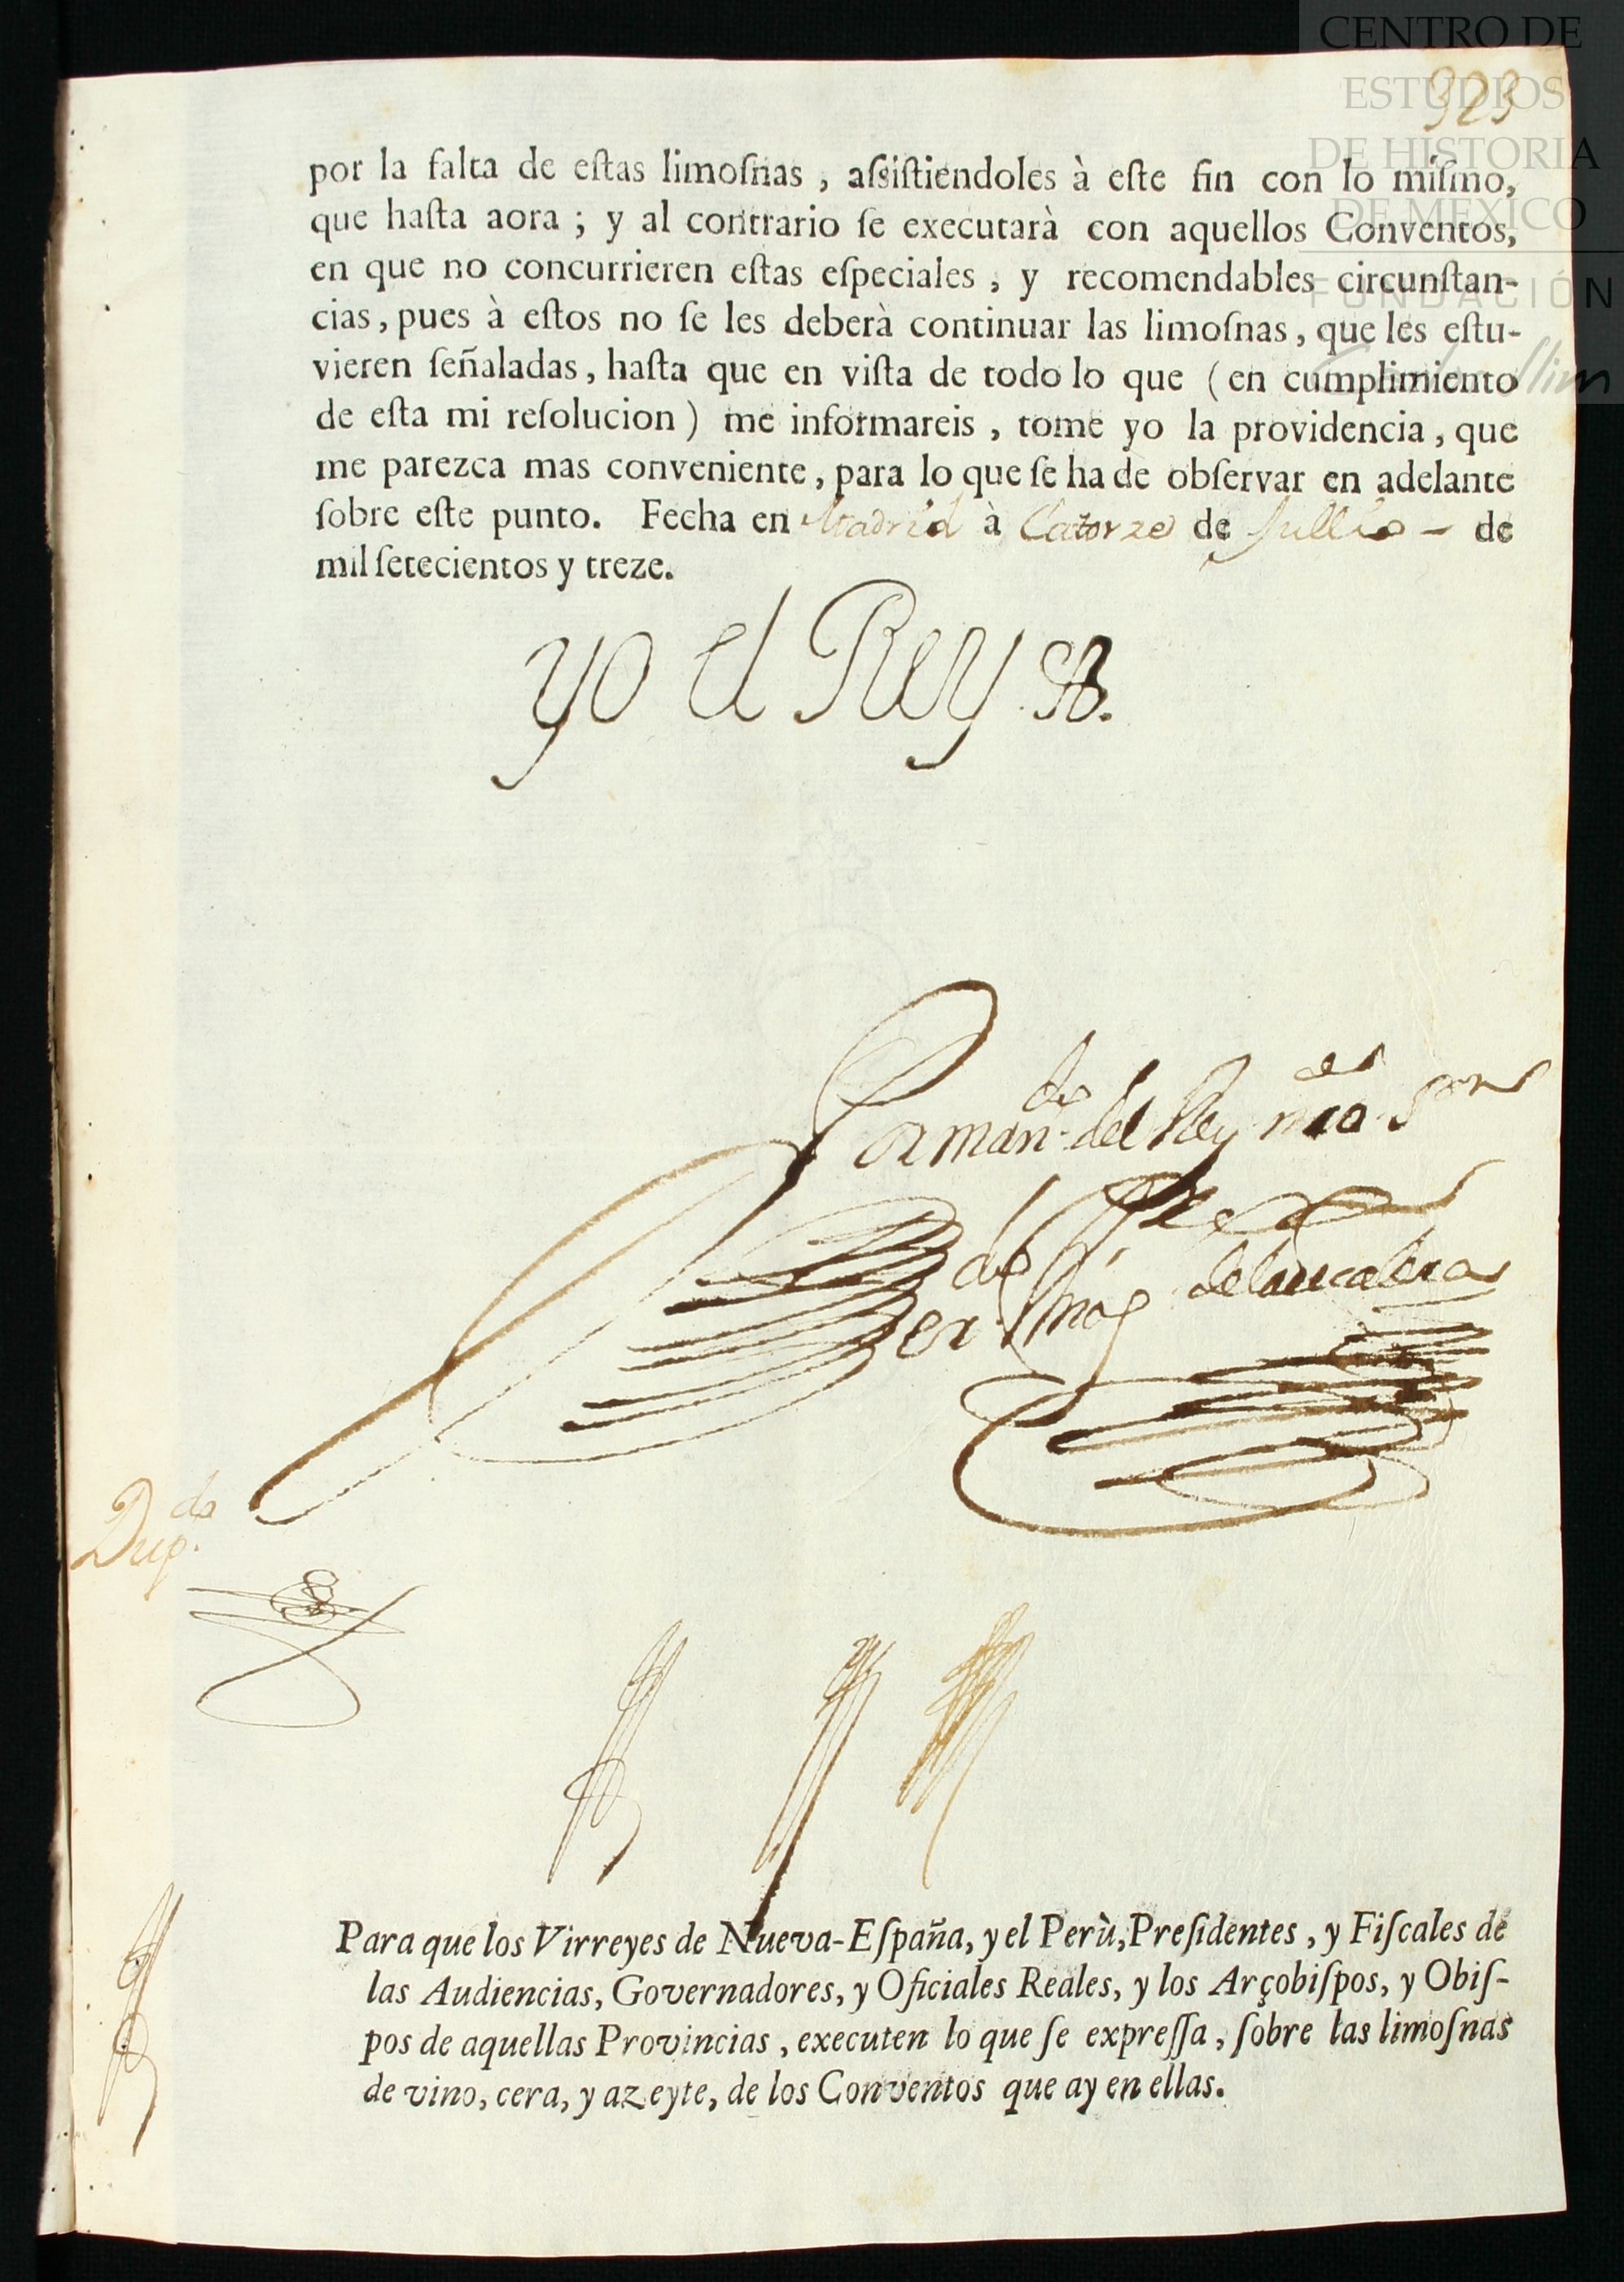 CENTRO DE
ESTUDIOS
DE HISTORIA
DE MEXICO
FUNDACIÓN
323
por la falta de eſtas limoſnas, aſsiſtiendoles à eſte fin con lo miſmo,
que haſta aora; y al contrario ſe executarà con aquellos Conventos,
en que no concurrieren eſtas eſpeciales, y recomendables circunſtan-
cias, pues à eſtos no ſe les deberà continuar las limoſnas, que les eſtu-
vieren ſeñaladas, haſta que en viſta de todo lo que (en cumplimiento
de eſta mi reſolucion) me informareis, tome yo la providencia, que
me parezca mas conveniente, para lo que ſe ha de obſervar en adelante
ſobre eſte punto. Fecha en Madrid à Catorze de Jullio - de
mil ſetecientos y treze.
yo el Rey
Por man.do del Rey nro S.or
Dup.do
Para que los Virreyes de Nueva-Eſpaña, y el Perù, Preſidentes, y Fiſcales de
las Audiencias, Governadores, y Oficiales Reales, y los Arçobiſpos, y Obiſ-
pos de aquellas Provincias, executen lo que ſe expreſſa, ſobre las limoſnas
de vino, cera, y azeyte, de los Conventos que ay en ellas.